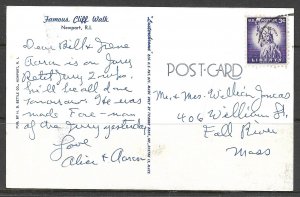 Famous Cliff Walk
Newport, R.I.
Dear Bill & Irene
Aaron is on Jury
Duty 2 wks.
he'll be all done
tomorrow. He was
made Fore-man
of the Jury yesterday
Love
Alice & Aaron
POST CARD
U.S. POSTAGE 3¢
LIBERTY
Mr. & Mrs. William
406 William St.
Fall River
Mass